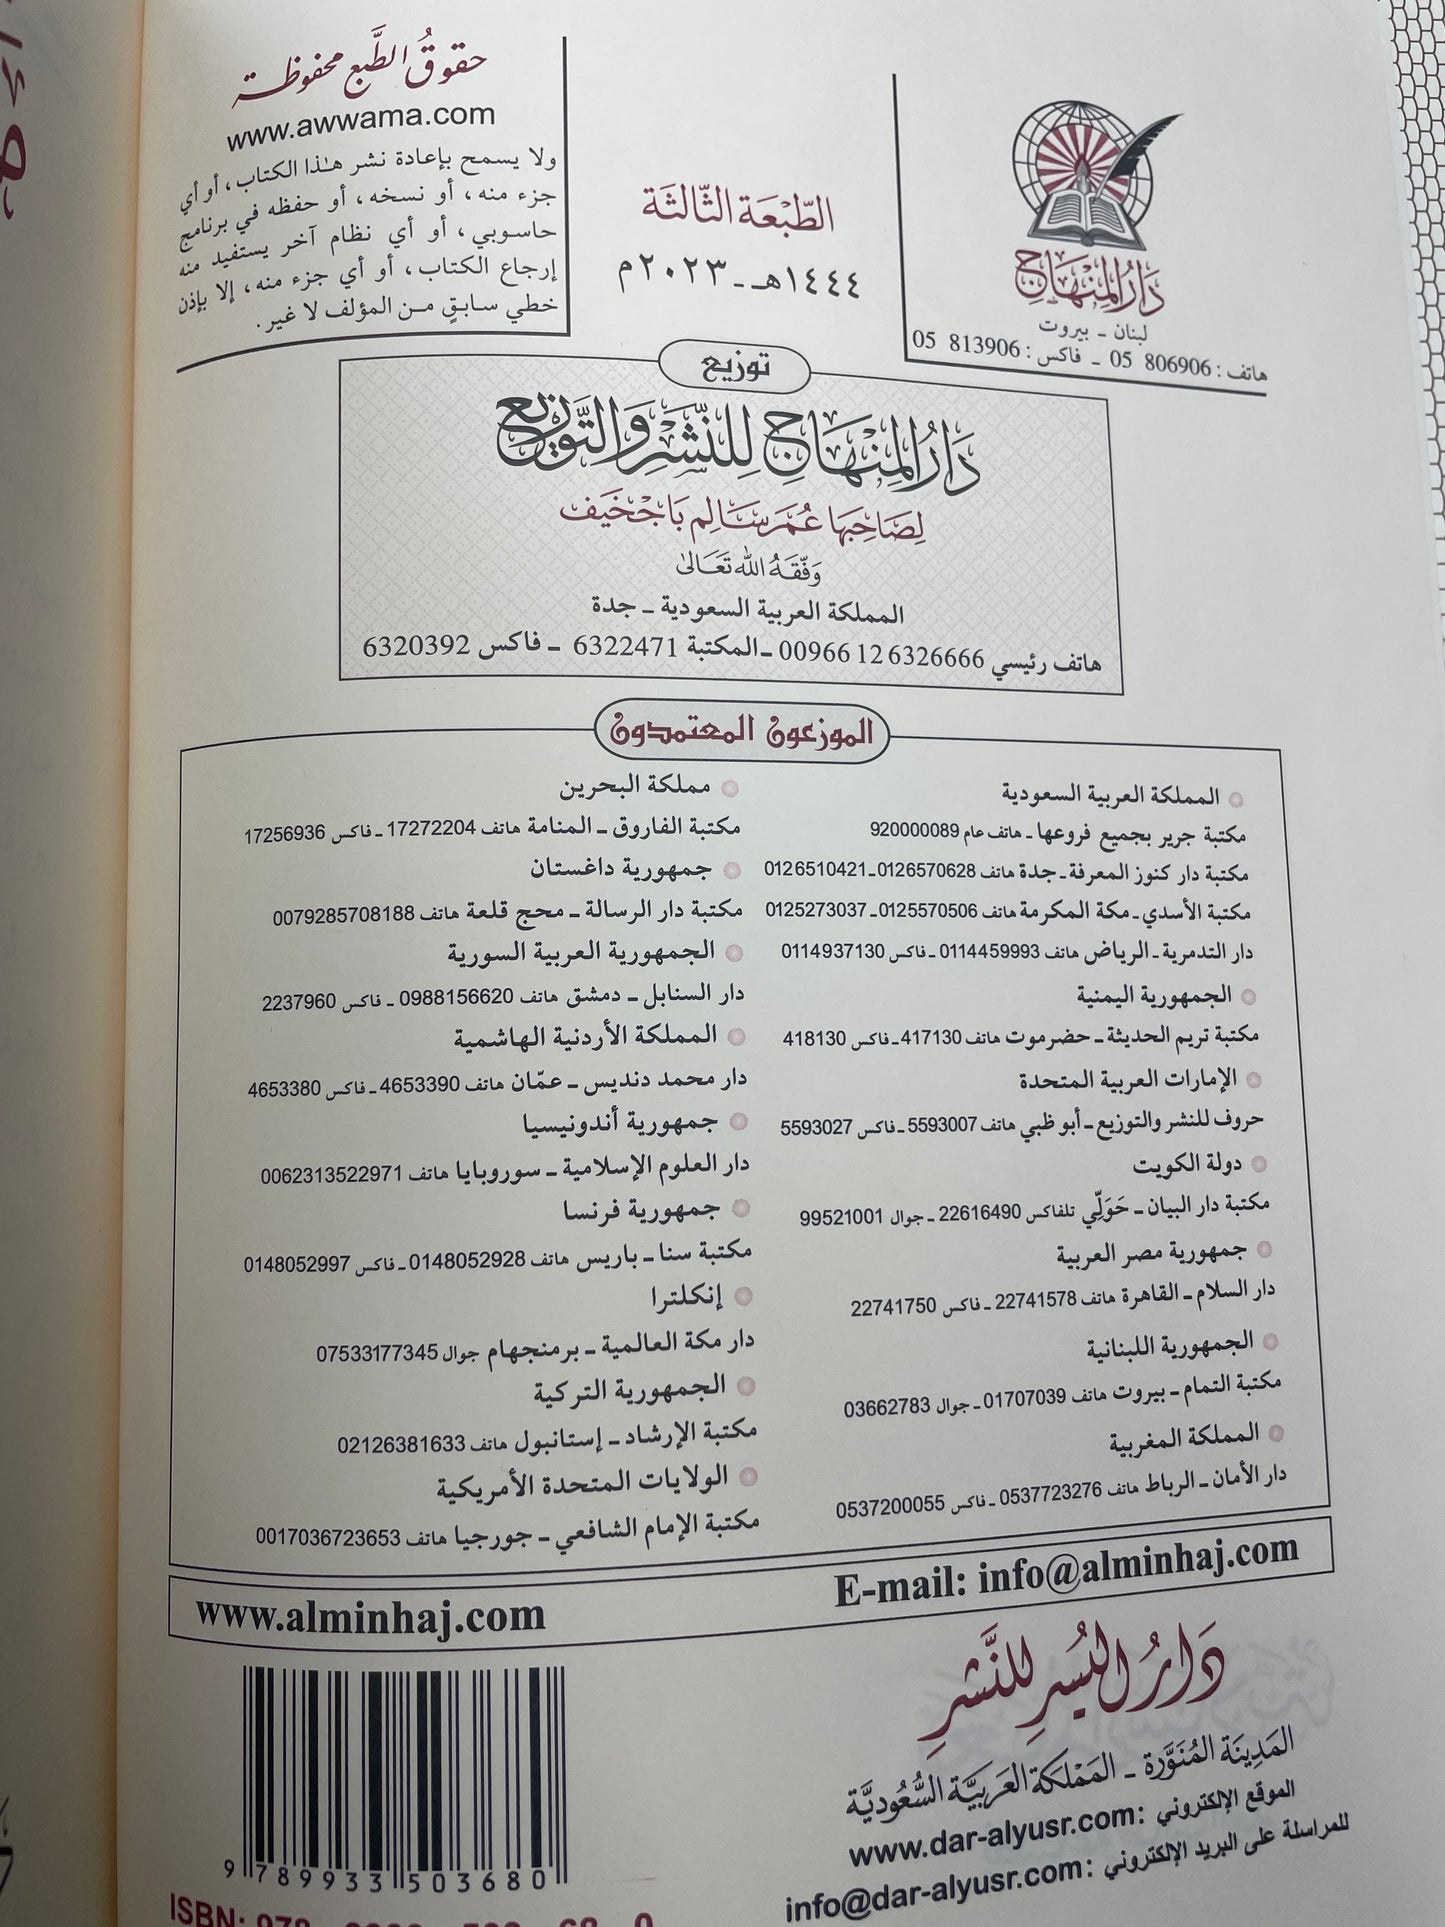 حقوقُ الطَّبع محفوظة
www.awwama.com
ولا يسمح بإعادة نشر هـٰذا الكتاب، أو أي
جزء منه، أو نسخه، أو حفظه في برنامج
حاسوبي، أو أي نظام آخر يستفيد منه
إرجاع الكتاب، أو أي جزء منه، إلا بإذن
خطي سابقٍ من المؤلف لا غير.
الطَّبْعَة الثَّالِثَة
١٤٤٤هـ ـ ٢٠٢٣م
دَارُ المِنْهَاج
لبنان ـ بيروت
هاتف: 806906 05 ـ فاكس: 813906 05
توزيع
دَارُ المِنْهَاج لِلنَّشْرِ وَالتَّوْزِيع
لِصَاحِبِهَا عُمَر سَالِم بَاجْخَيف
وَفَّقَهُ اللَّه تَعَالَىٰ
المملكة العربية السعودية ـ جدة
هاتف رئيسي 6326666 12 00966 ـ المكتبة 6322471 ـ فاكس 6320392
الموزعون المعتمدون
المملكة العربية السعودية
مكتبة جرير بجميع فروعها ـ هاتف عام 920000089
مكتبة دار كنوز المعرفة ـ جدة هاتف 0126570628 ـ 0126510421
مكتبة الأسدي ـ مكة المكرمة هاتف 0125570506 ـ 0125273037
دار التدمرية ـ الرياض هاتف 0114459993 ـ فاكس 0114937130
الجمهورية اليمنية
مكتبة تريم الحديثة ـ حضرموت هاتف 417130 ـ فاكس 418130
الإمارات العربية المتحدة
حروف للنشر والتوزيع ـ أبو ظبي هاتف 5593007 ـ فاكس 5593027
دولة الكويت
مكتبة دار البيان ـ حَوَلِّي تلفاكس 22616490 ـ جوال 99521001
جمهورية مصر العربية
دار السلام ـ القاهرة هاتف 22741578 ـ فاكس 22741750
الجمهورية اللبنانية
مكتبة التمام ـ بيروت هاتف 01707039 ـ جوال 03662783
المملكة المغربية
دار الأمان ـ الرباط هاتف 0537723276 ـ فاكس 0537200055
مملكة البحرين
مكتبة الفاروق ـ المنامة هاتف 17272204 ـ فاكس 17256936
جمهورية داغستان
مكتبة دار الرسالة ـ محج قلعة هاتف 0079285708188
الجمهورية العربية السورية
دار السنابل ـ دمشق هاتف 0988156620 ـ فاكس 2237960
المملكة الأردنية الهاشمية
دار محمد دنديس ـ عمّان هاتف 4653390 ـ فاكس 4653380
جمهورية أندونيسيا
دار العلوم الإسلامية ـ سوروبايا هاتف 0062313522971
جمهورية فرنسا
مكتبة سنا ـ باريس هاتف 0148052928 ـ فاكس 0148052997
إنكلترا
دار مكة العالمية ـ برمنجهام جوال 07533177345
الجمهورية التركية
مكتبة الإرشاد ـ إستانبول هاتف 02126381633
الولايات المتحدة الأمريكية
مكتبة الإمام الشافعي ـ جورجيا هاتف 0017036723653
E-mail: info@alminhaj.com
www.alminhaj.com
دَارُ اليُسرِ للنَّشرِ
المَدِينَة المُنَوَّرَة ـ المَمْلَكَة العَرَبِيَّة السُّعُودِيَّة
الموقع الإلكتروني: www.dar-alyusr.com
للمراسلة على البريد الإلكتروني: info@dar-alyusr.com
9 789933 503680
ISBN: 978